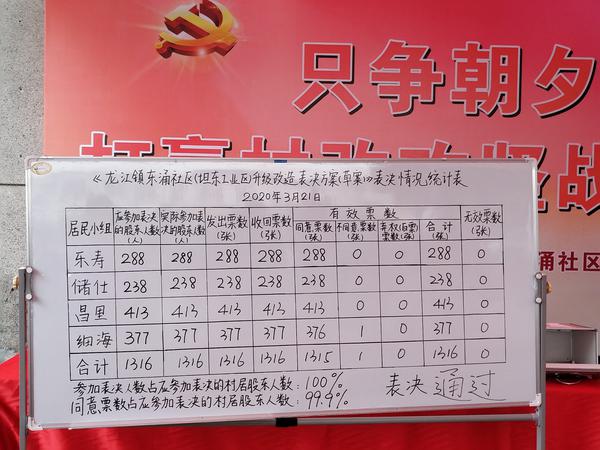 只争朝夕
打赢村改攻坚战
涌社区
《龙江镇东涌社区(坦东工业区)升级改造表决方案(草案)》表决情况统计表
2020年3月21日
居民小组 应参加表决的股东人数(人) 实际参加表决的股东人数(人) 发出票数(张) 收回票数(张) 有效票数 无效票数(张)
同意票数(张) 不同意票数(张) 弃权(白票)票数(张) 合计(张)
东寿 288 288 288 288 288 0 0 288 0
储仕 238 238 238 238 238 0 0 238 0
昌里 413 413 413 413 413 0 0 413 0
细海 377 377 377 377 376 1 0 377 0
合计 1316 1316 1316 1316 1315 1 0 1316 0
参加表决人数占应参加表决的村居股东人数：100%
同意票数占应参加表决的村居股东人数：99.9%
表决通过